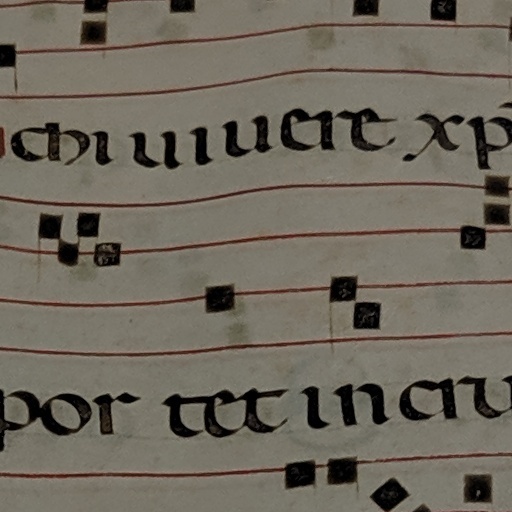 chi uiuere xp
por tet in cru